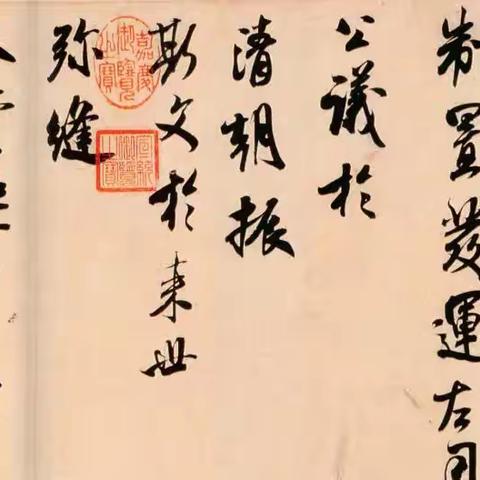 制置發運左司
公議於
清朝振
斯文於來世
弥縫
嘉慶御覽之寶
宣統御覽之寶